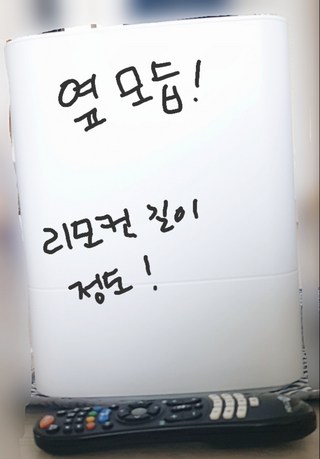 옆 모듭!
리모컨 길이
정도!